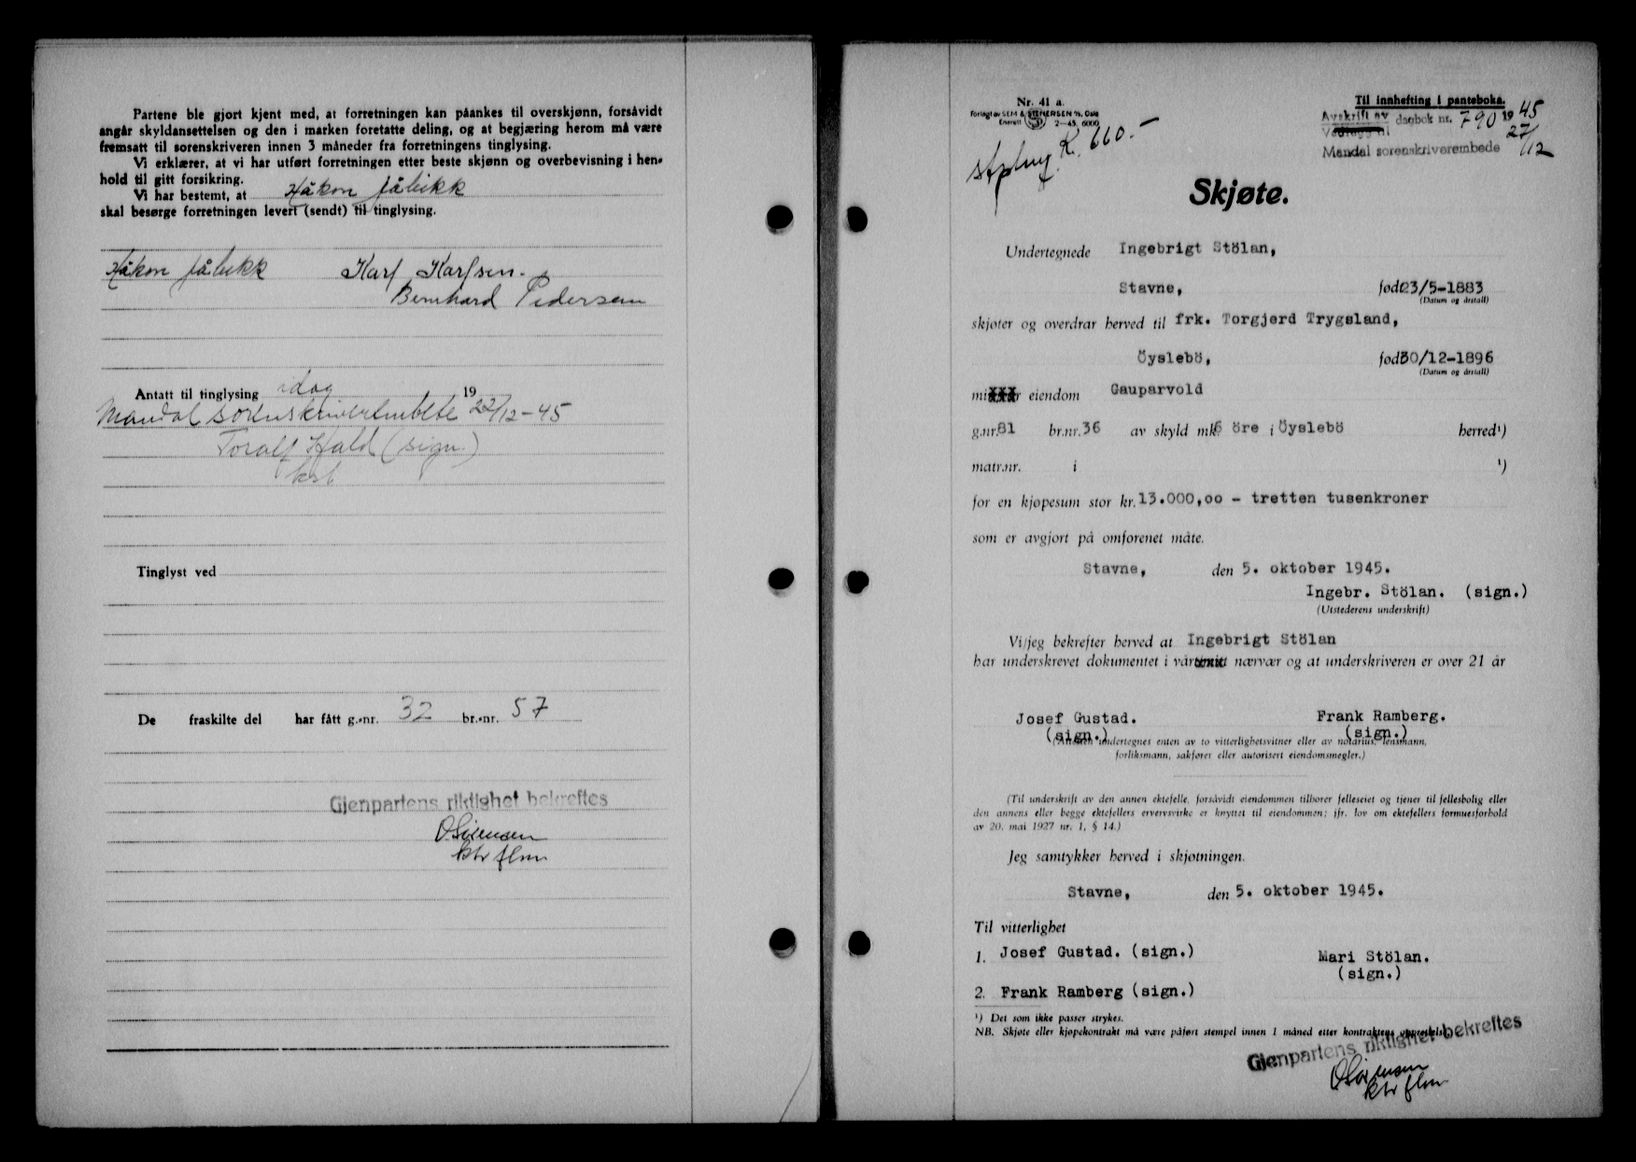 Partene ble gjort kjent med, at forretningen kan påankes til overskjønn, forsåvidt
angår skyldansettelsen og den i marken foretatte deling, og at begjæring herom må være
fremsatt til sorenskriveren innen 3 måneder fra forretningens tinglysing.
Vi erklærer, at vi har utført forretningen etter beste skjønn og overbevisning i hen-
hold til gitt forsikring.
Vi har bestemt, at Håkon Jåbekk
skal besørge forretningen levert (sendt) til tinglysing.
Håkon Jåbekk Karl Karlsen.
Bernhard Pedersen
Antatt til tinglysing idag 19
Mandal sorenskriverembete 22/12-45
Toralf Hald (sign.)
kst
Tinglyst ved
De fraskilte del har fått g.-nr. 32 br.-nr. 57
Gjenpartens riktighet bekreftes
O Sørensen
ktr flm
Nr. 41 a.
Forlagt av SEM & STENERSEN A/S, Oslo
Enerett 2-45. 6000
Til innhefting i panteboka.
Avskrift av dagbok nr. 790 1945
27/12
Mandal sorenskriverembede
K. 660.-
Skjøte.
Undertegnede Ingebrigt Stölan,
Stavne, født 23/5-1883
(Datum og årstall)
skjøter og overdrar herved til frk. Torgjerd Trygsland,
Öyslebö, født 30/12-1896
(Datum og årstall)
min eiendom Gauparvold
g.nr. 81 br.nr. 36 av skyld mk. 6 öre i Öyslebö herred¹)
matr.nr. i ¹)
for en kjøpesum stor kr. 13.000,oo - tretten tusenkroner
som er avgjort på omforenet måte.
Stavne, den 5. oktober 1945.
Ingebr. Stölan. (sign.)
(Utstederens underskrift)
Vi/jeg bekrefter herved at Ingebrigt Stölan
har underskrevet dokumentet i vårt nærvær og at underskriveren er over 21 år
Josef Gustad. Frank Ramberg.
(sign.) (sign.)
(Attesten undertegnes enten av to vitterlighetsvitner eller av notarius, lensmann,
forliksmann, sakfører eller autorisert eiendomsmegler.)
(Til underskrift av den annen ektefelle, forsåvidt eiendommen tilhører felleseiet og tjener til fellesbolig eller
den annens eller begge ektefellers ervervsvirke er knyttet til eiendommen; jfr. lov om ektefellers formuesforhold
av 20. mai 1927 nr. 1, § 14.)
Jeg samtykker herved i skjøtningen.
Stavne, den 5. oktober 1945.
Til vitterlighet
1. Josef Gustad. (sign.) Mari Stölan.
(sign.)
2. Frank Ramberg (sign.)
¹) Det som ikke passer strykes.
NB. Skjøte eller kjøpekontrakt må være påført stempel innen 1 måned etter kontraktens opprettelse.
Gjenpartens riktighet bekreftes
O Sørensen
ktr flm